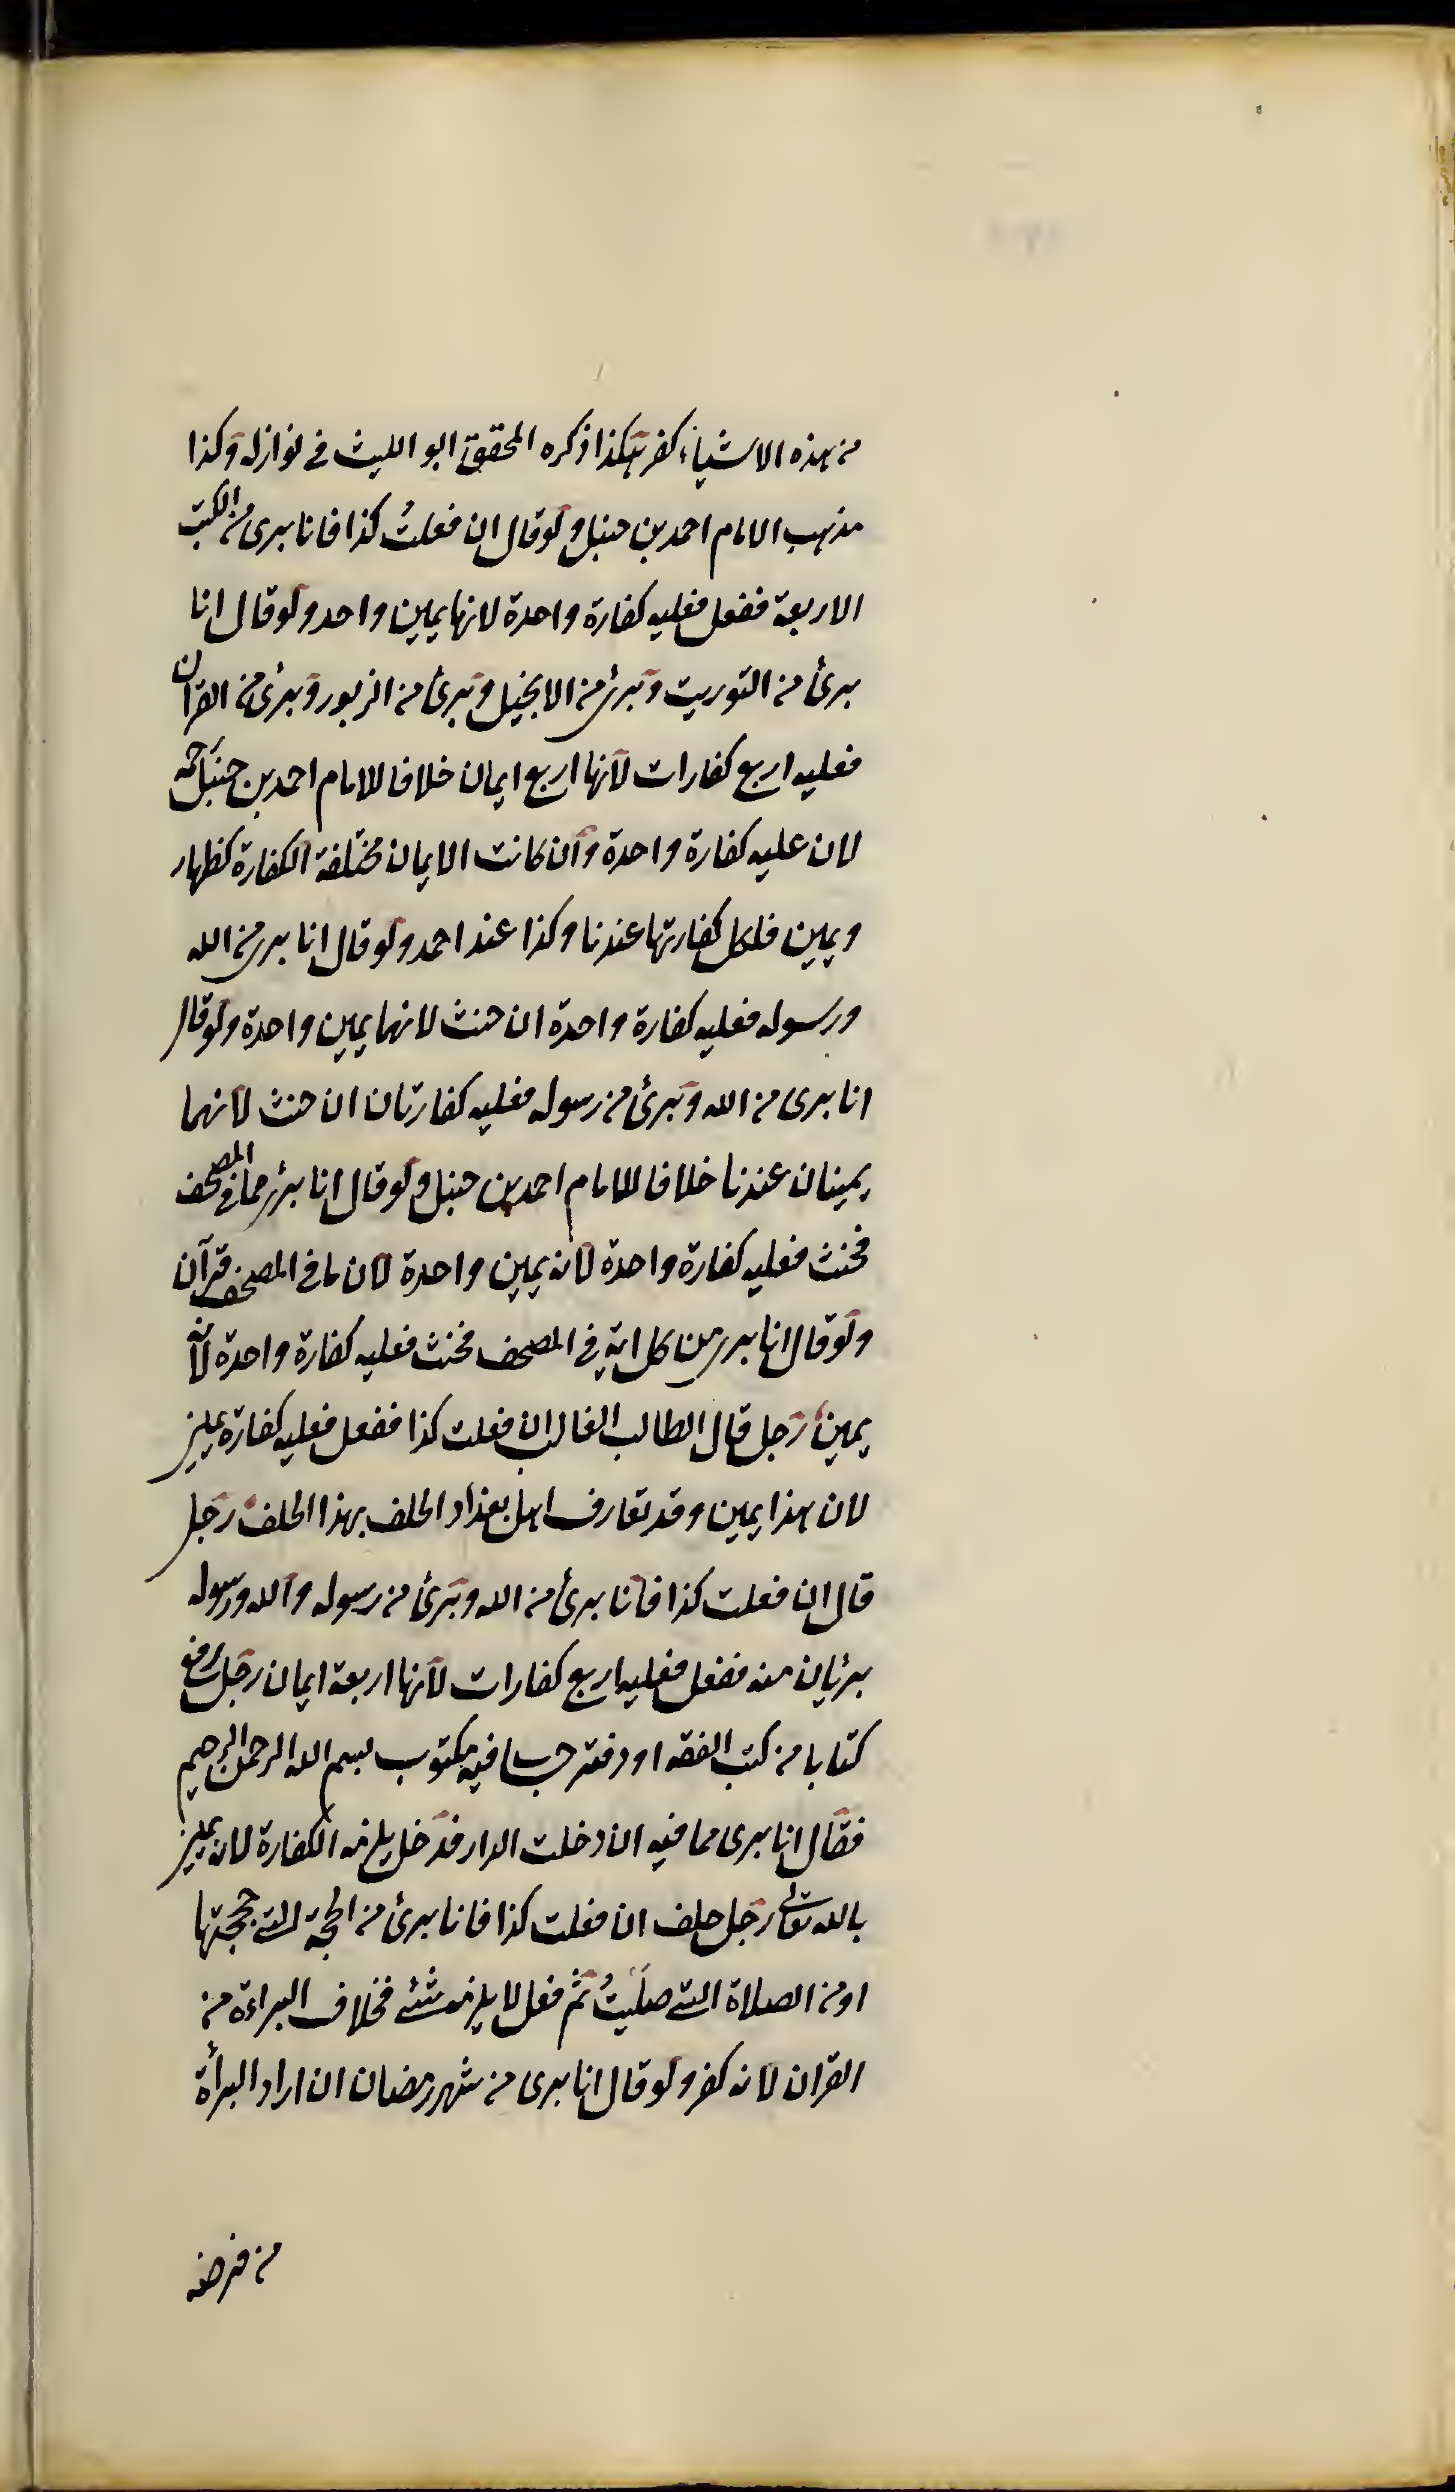 من هذه الاشياء كفر هكذا ذكره المحقق ابو الليث في نوازله وكذا
مذهب الامام احمد بن حنبل ولو قال ان فعلتُ كذا فانا برى من الكتب
الاربعة ففعل فعليه كفارة واحدة لانها يمين واحد ولو قال انا
برئ من التوريت وبرئ من الانجيل وبرئ من الزبور وبرئ من القران
فعليه اربع كفارات لانها اربع ايمان خلافا للامام احمد بن حنبل رحمه
لان عليه كفارة واحدة وان كانت الايمان مختلفة الكفارة كظهار
ويمين فلكل كفارتها عندنا وكذا عند احمد ولو قال انا برى من الله
ورسوله فعليه كفارة واحدة ان حنث لانهما يمين واحدة ولو قال
انا برى من الله وبرئ من رسوله فعليه كفارتان ان حنث لانهما
يمينان عندنا خلافا للامام احمد بن حنبل ولو قال انا برئ مما في المصحف
فحنث فعليه كفارة واحدة لانه يمين واحدة لان ما في المصحف قرآن
ولو قال انا برى من كل اية في المصحف فحنث فعليه كفارة واحدة لانه
يمين رجل قال الطالب الغالب ان فعلت كذا ففعل فعليه كفارة يمين
لان هذا يمين وقد تعارف اهل بغداد الحلف بهذا الحلف رجل
قال ان فعلت كذا فانا برئ من الله وبرئ من رسوله والله ورسوله
بريان منه ففعل فعليه اربع كفارات لانها اربعة ايمان رجل رفع
كتابا من كتب الفقه او دفتر حساب فيه مكتوب بسم الله الرحمن الرحيم
فقال انا برى مما فيه ان دخلت الدار فدخل يلزمه الكفارة لانه يمين
بالله تعالى رجل حلف ان فعلت كذا فانا برئ من الحجة التي حججتها
او من الصلاة التي صليتُ ثم فعل لا يلزمه شئ بخلاف البراءة من
القران لانه كفر ولو قال انا برى من شهر رمضان ان اراد البرأة
من فرضه